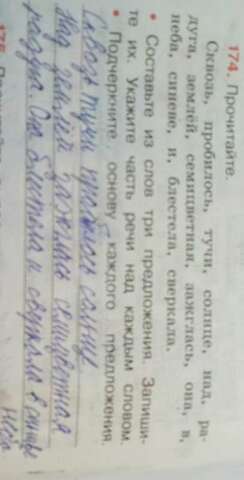 174. Прочитайте.
Сквозь, пробилось, тучи, солнце, над, ра-
дуга, землёй, семицветная, зажглась, она, в,
неба, синеве, и, блестела, сверкала.
• Составьте из слов три предложения. Запиши-
те их. Укажите часть речи над каждым словом.
• Подчеркните основу каждого предложения.
Сквозь тучи солнце
Над землёй зажглась семицветная
радуга. Она блестела и сверкала в синеве
неба
175.